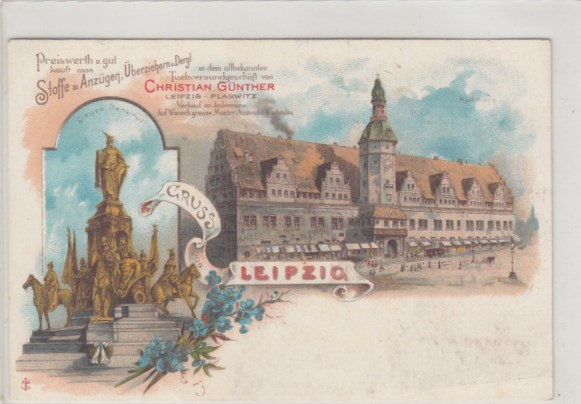 Preiswerth u. gut
kauft man
Stoffe zu Anzügen, Überziehern u. Dergl.
in dem altbekannten
Tuchversandgeschäft von
CHRISTIAN GÜNTHER
LEIPZIG - PLAGWITZ
Verkauf an Jedermann
Auf Wunsch grosse Muster-Auswahl
GRUSS
aus
LEIPZIG